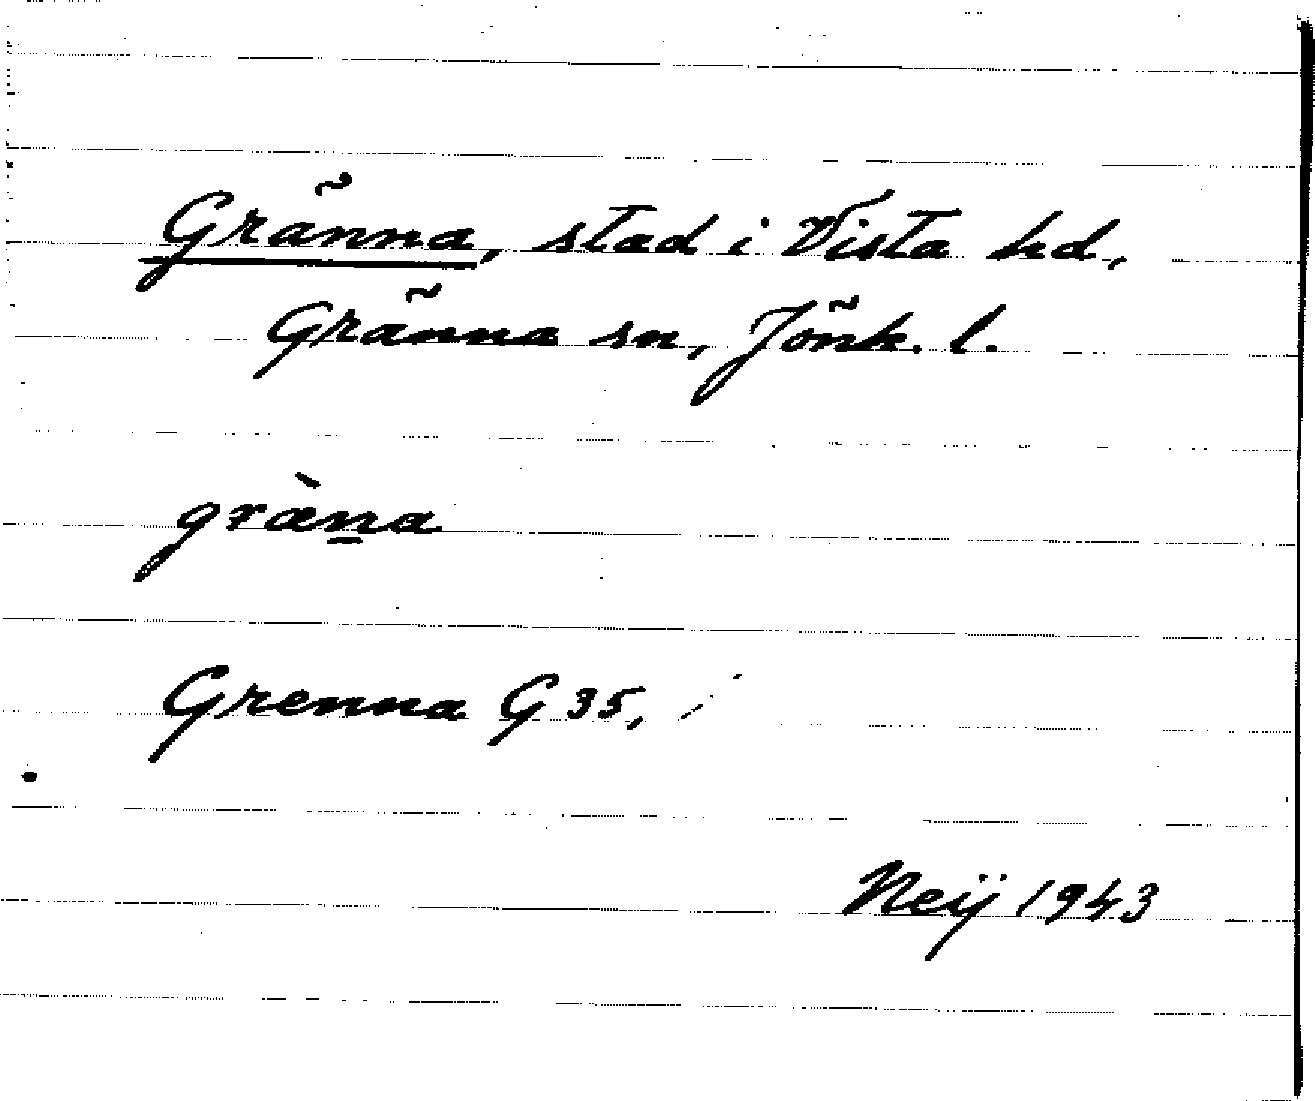 Gränna, stad i Vista hd,
Gränna sn, Jönk. l.
græ̀n̲a
Grenna G 35,
Neij 1943